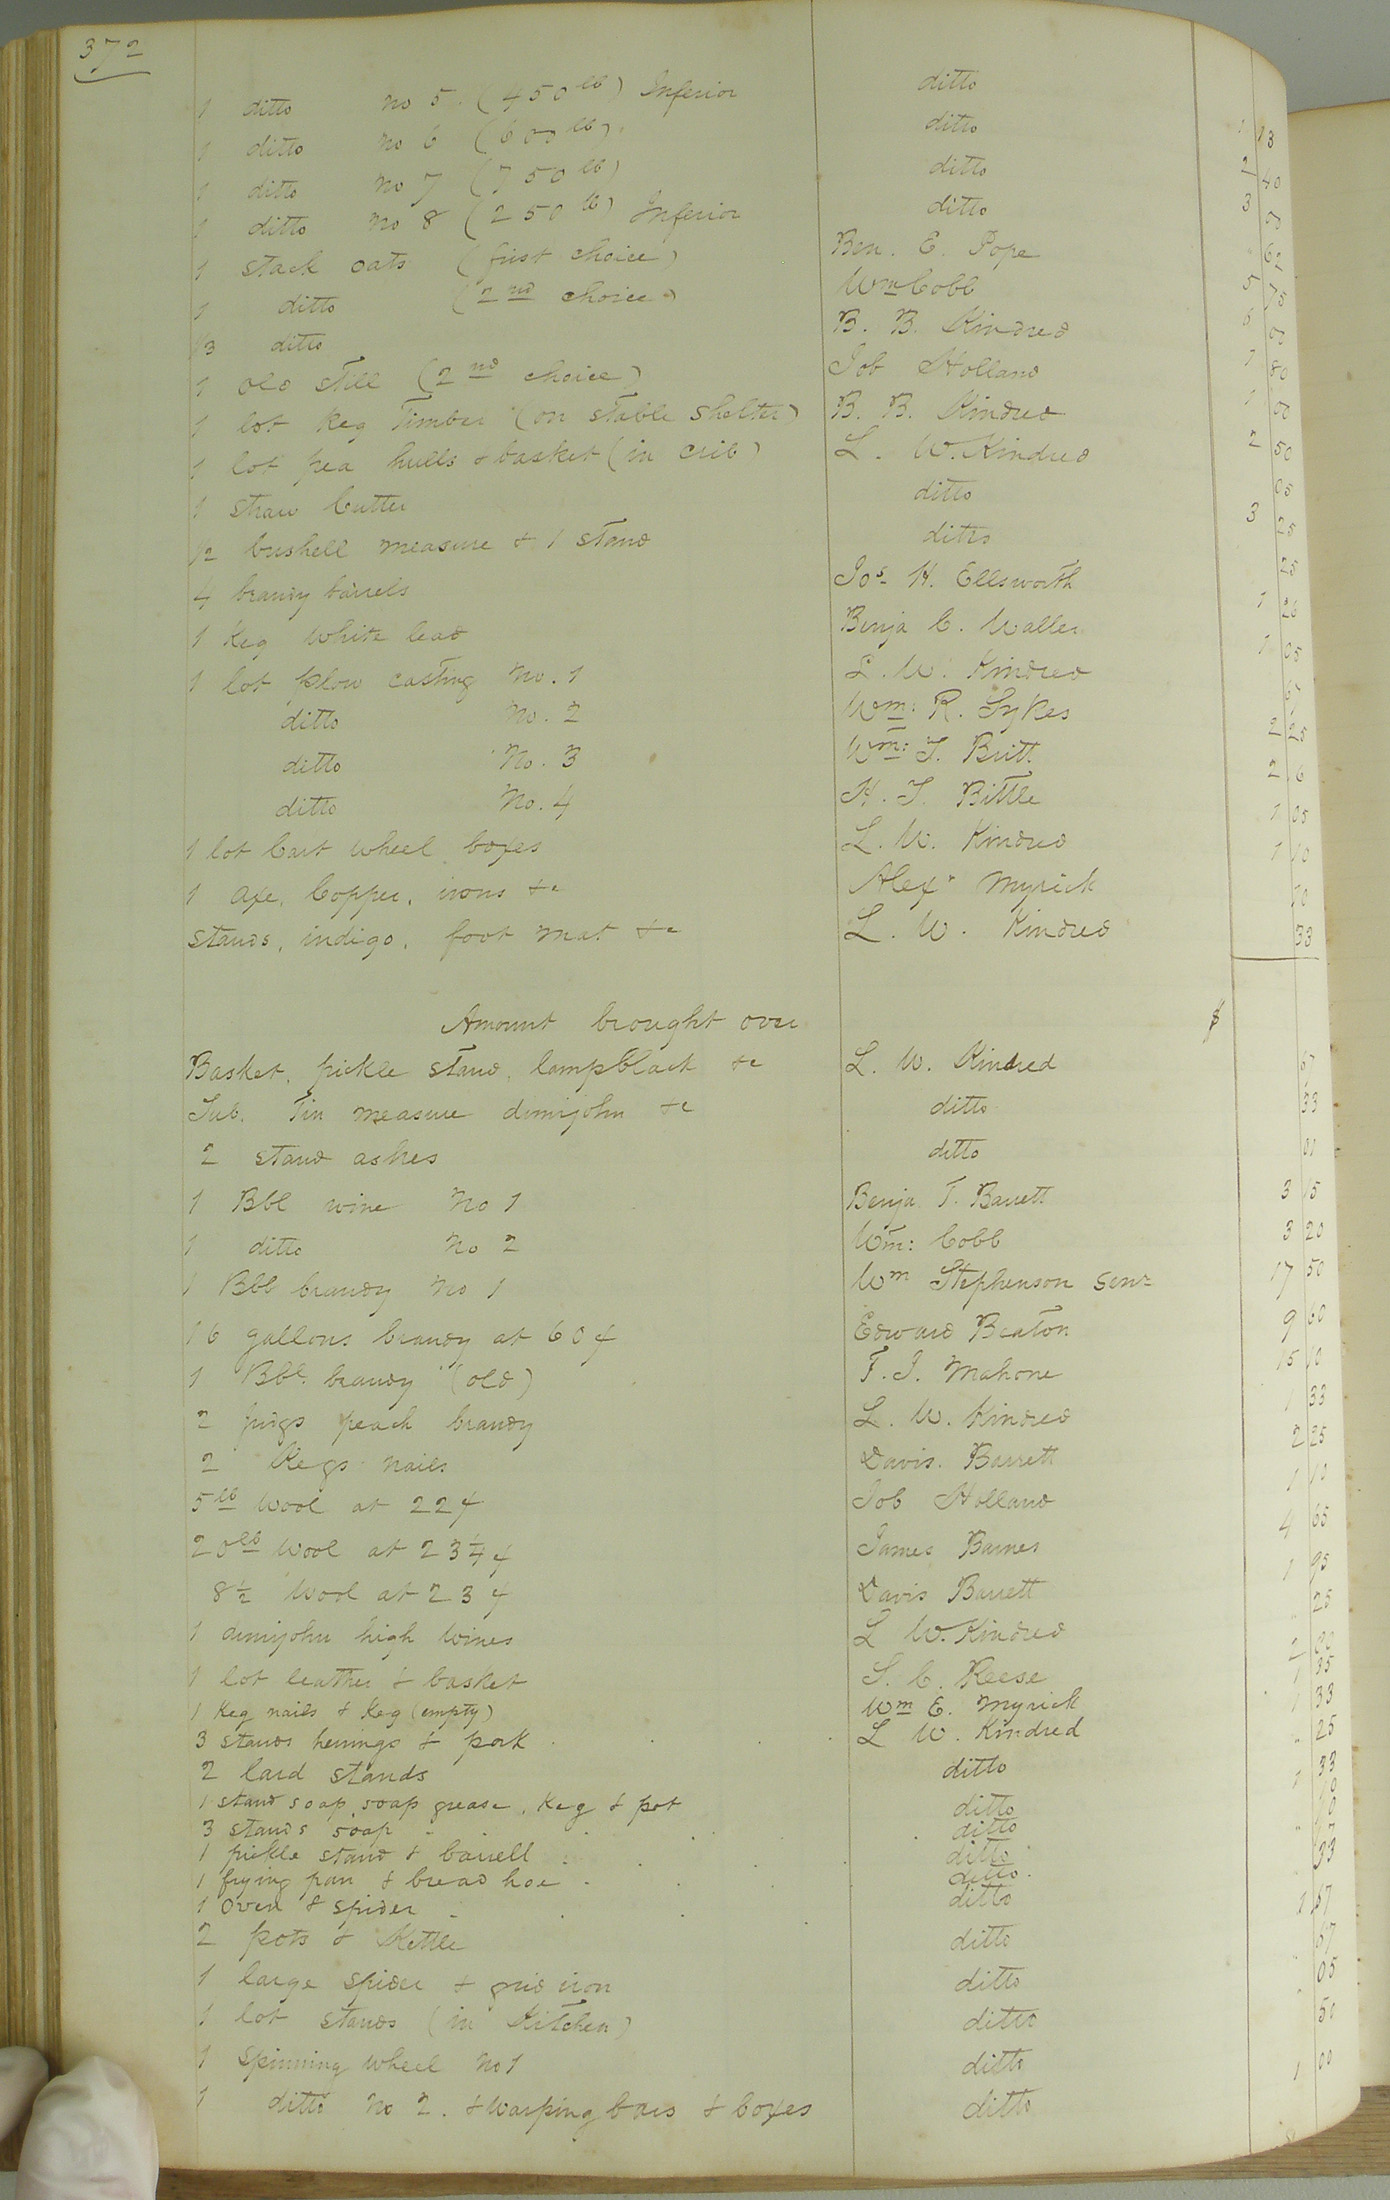 372
1 ditto no 5. (450 lb) Inferior ditto
1 ditto no 6 (600 lb) ditto 1 13
1 ditto no 7 (750 lb) ditto 2 40
1 ditto no 8 (250 lb) Inferior ditto 3 00
1 stack oats (first choice) Ben. E. Pope " 62
1 ditto (2nd choice) Wm Cobb 5 75
1/3 ditto B. B. Kindred 6 00
1 old still (2nd choice) Job Holland 1 80
1 lot keg Timber (on stable shelter) B. B. Kindred 1 00
1 lot pea hulls & basket (in crib) L. W. Kindred 2 50
1 straw Cutter ditto 05
1/2 bushell measure & 1 stand ditto 3 25
4 brandy barrels Jos. H. Ellsworth 25
1 Keg White lead Benja C. Waller 1 26
1 lot plow casting No. 1 L. W. Kindred 1 05
ditto No. 2 Wm: R. Sykes
ditto No. 3 Wm: T. Britt 2 25
ditto No. 4 H. T. Bittle 2 6
1 lot Cart Wheel boxes L. W. Kindred 1 05
1 axe, Copper, irons &c Alexr Myrick 1 10
Stands, indigo, foot mat &c L. W. Kindred 70
33
Amount brought over $
Basket, pickle stand, lampblack &c L. W. Kindred 67
Tub, Tin measure demijohn &c ditto 33
2 stand ashes ditto 01
1 Bbl wine No 1 Benja T. Barrett 3 15
1 ditto No 2 Wm: Cobb 3 20
1 Bbl brandy No 1 Wm Stephenson Senr 17 50
16 gallons brandy at 60 ¢ Edward Beaton 9 60
1 Bbl. brandy (old) F. J. Mahone 15 10
2 jugs peach brandy L. W. Kindred 1 33
2 Kegs nails Davis. Barrett 2 25
5 lb Wool at 22 ¢ Job Holland 1 10
20 lb Wool at 23 1/4 ¢ James Barnes 4 65
8 1/2 Wool at 23 ¢ Davis Barrett 1 95
1 dimijohn high Wines L W. Kindred " 25
1 lot leather & basket S. C. Reese 2 00
1 Keg nails & Keg (empty) Wm E. Myrick 1 35
3 stands herrings & pork L W. Kindred 1 33
2 lard stands ditto " 25
1 stand soap, soap grease, Keg & pot ditto 33
3 stands soap ditto
1 pickle stand & barrell ditto
1 frying pan & bread hoe ditto 33
1 oven & spider ditto
2 pots & Kettle ditto 1 67
1 large spider & grid iron ditto 67
1 lot stands (in Kitchen) ditto 05
1 Spinning Wheel No 1 ditto 50
1 ditto No 2. & Warping bars & boxes ditto 1 00